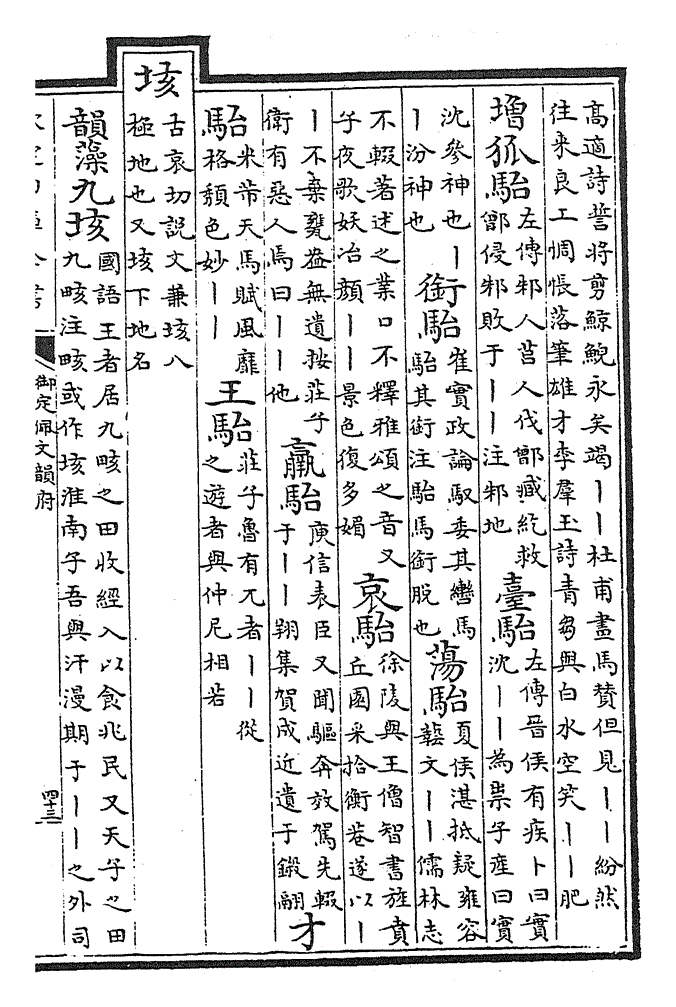 高適詩誓將剪鯨鯢永矣竭丨丨杜甫畫馬賛但見丨丨紛然
往來良工惆悵落筆雄才李羣玉詩青芻與白水空笑丨丨肥
增狐駘
左傳邾人莒人伐鄫臧紇救
鄫侵邾敗于丨丨注邾地
臺駘
左傳晉侯有疾卜曰實
沈丨丨為祟子產曰實
沈參神也丨
丨汾神也
銜駘
崔實政論馭委其轡馬
駘其銜注駘馬銜脫也
蕩駘
夏侯湛抵疑雍容
藝文丨丨儒林志
不輟著述之業口不釋雅頌之音又
子夜歌妖冶顏丨丨景色復多媚
哀駘
徐陵與王僧智書旌賁
丘園采拾衡巷遂以丨
丨不棄甕盎無遺按莊子
衛有惡人焉曰丨丨他
羸駘
庾信表臣又聞驅奔效駕先輟
于丨丨翔集賀成近遺于鎩翮
才
駘
米芾天馬賦風靡
格頹色妙丨丨
王駘
莊子魯有兀者丨丨從
之遊者與仲尼相若
垓
古哀切說文兼垓八
極地也又垓下地名
韻藻九垓
國語王者居九畡之田收經入以食兆民又天子之田
九畡注畡或作垓淮南子吾與汗漫期于丨丨之外司
御定佩文韻府
四十三